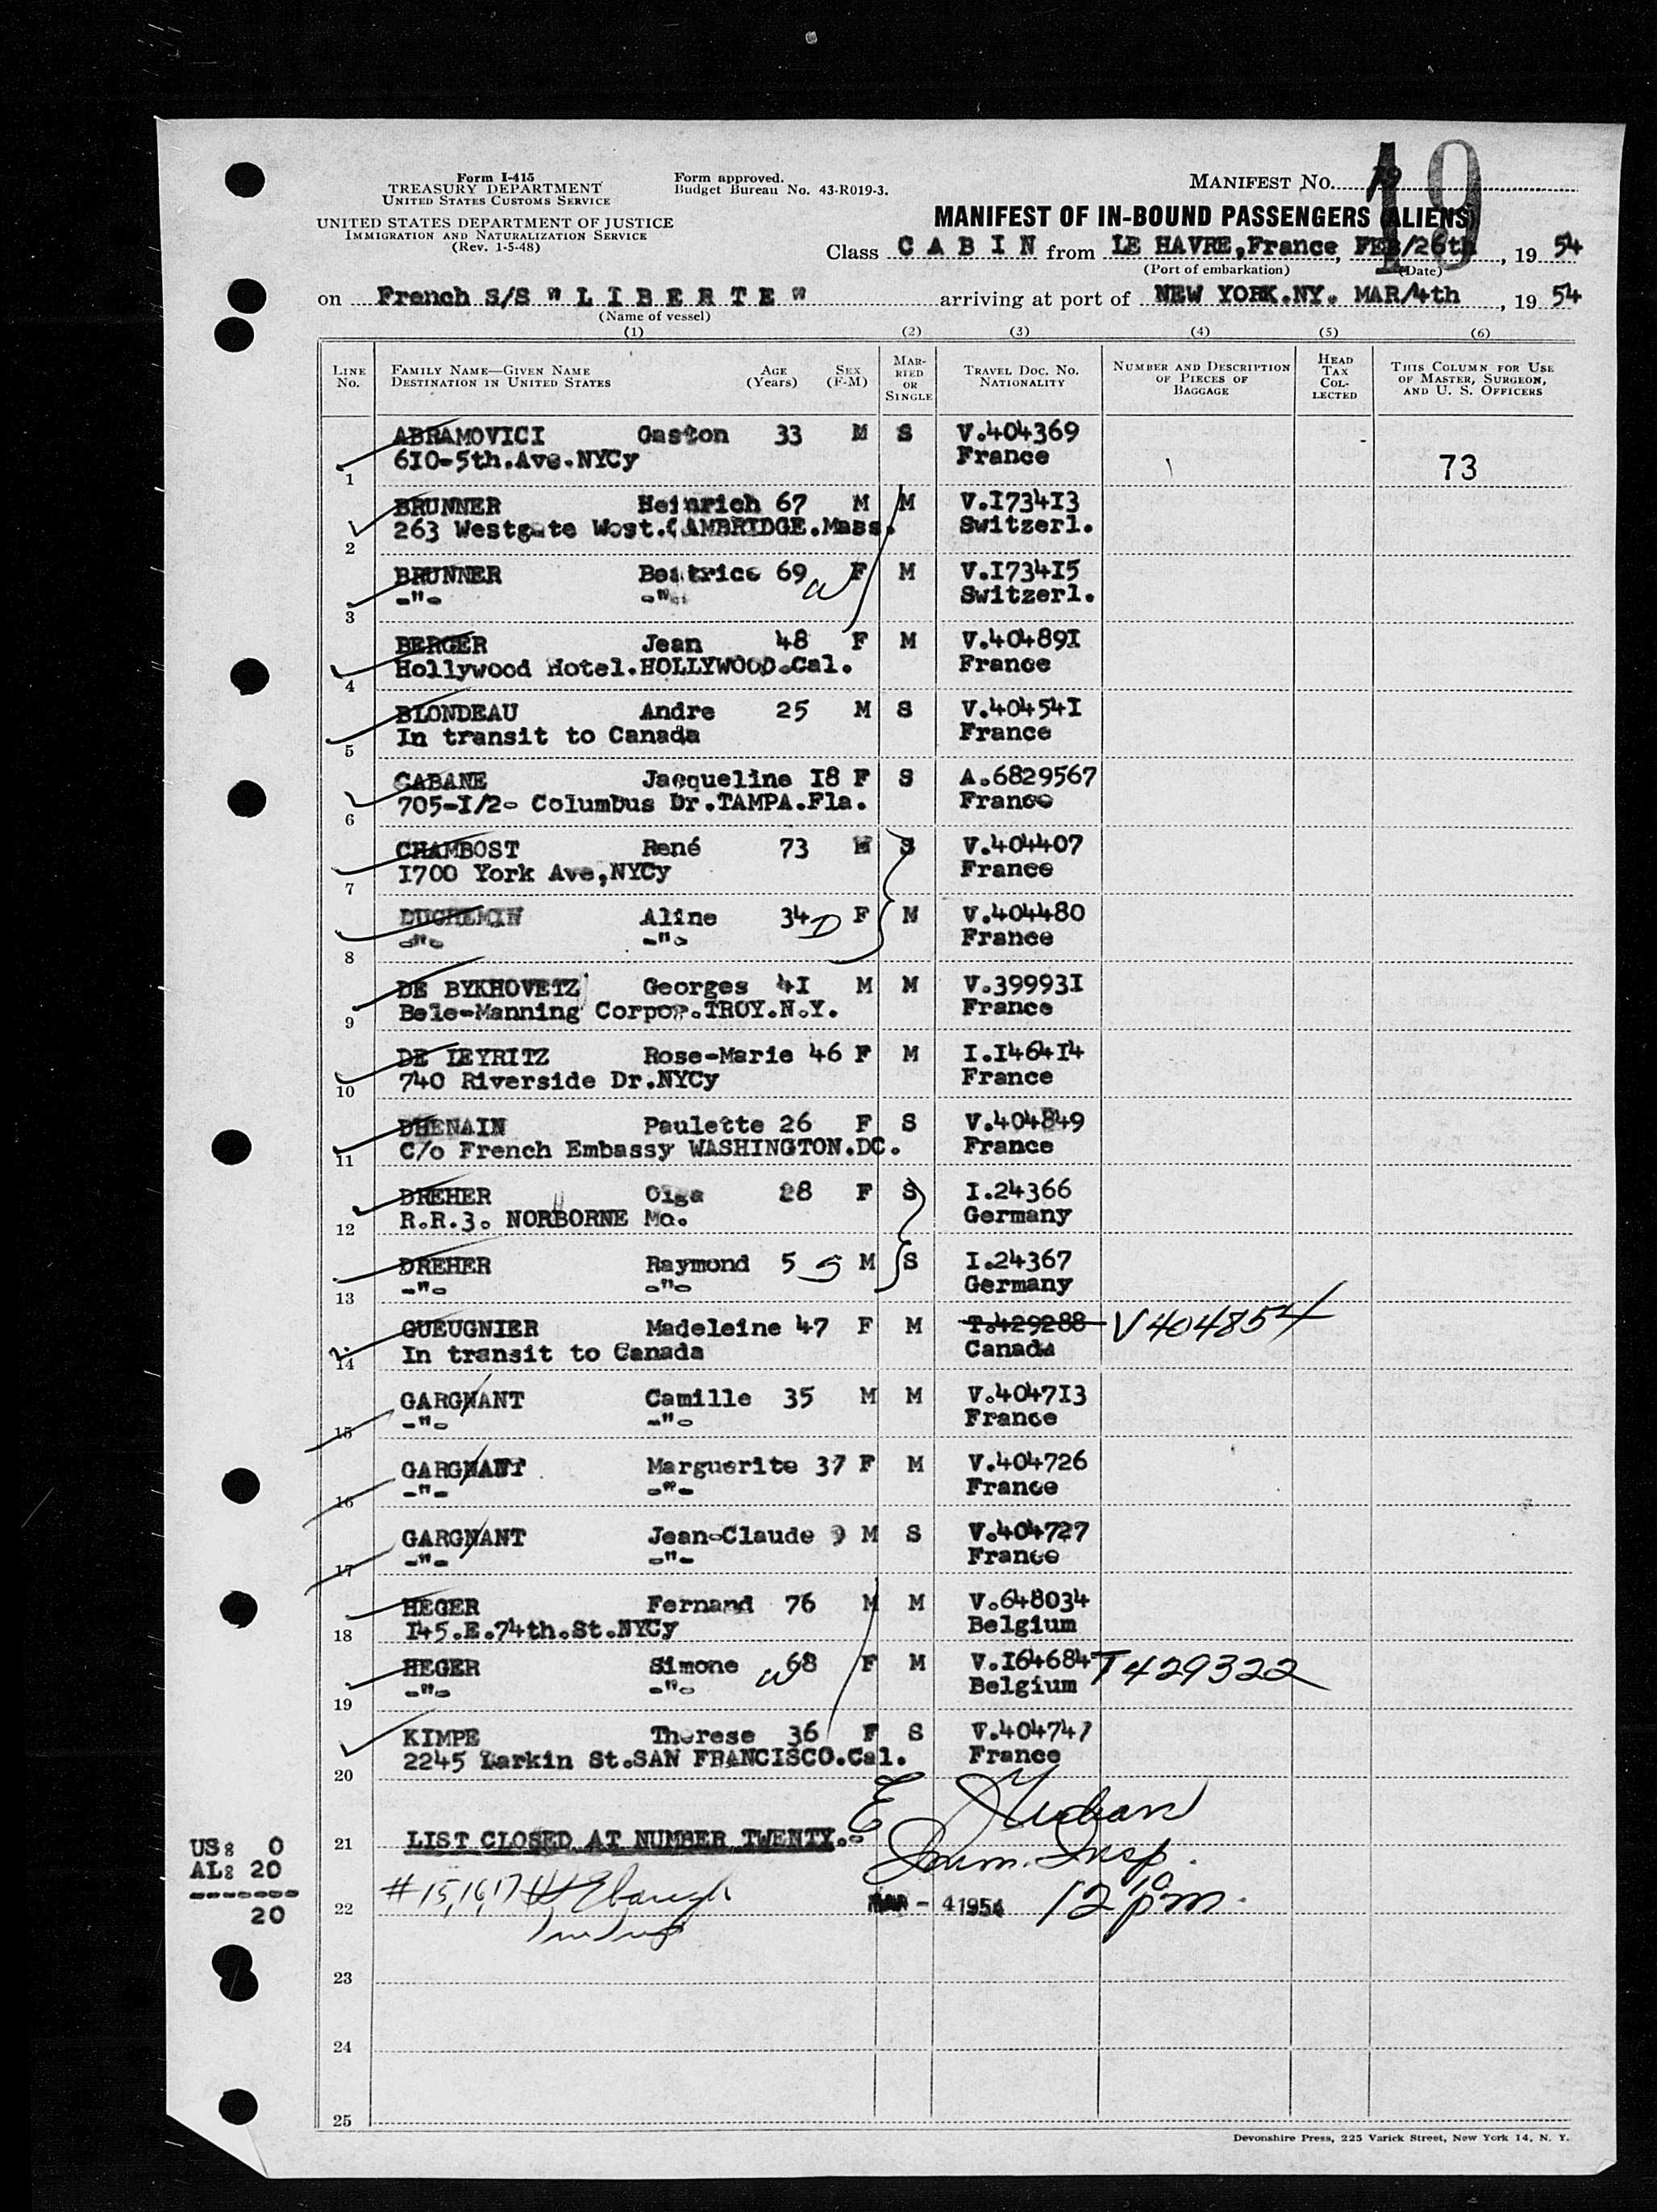 Form I-415
TREASURY DEPARTMENT
UNITED STATES CUSTOMS SERVICE
UNITED STATES DEPARTMENT OF JUSTICE
IMMIGRATION AND NATURALIZATION SERVICE
(Rev. 1-5-48)
Form approved.
Budget Bureau No. 43-R019-3.
MANIFEST NO. 19
19
MANIFEST OF IN-BOUND PASSENGERS (ALIENS)
Class C A B I N from LE HAVRE,France, FEB/26th, 19 54
(Port of embarkation) (Date)
on French S/S " L I B E R T E " arriving at port of NEW YORK.NY. MAR/4th, 19 54
(Name of vessel)
(1) (2) (3) (4) (5) (6)
LINE No.
FAMILY NAME—GIVEN NAME
DESTINATION IN UNITED STATES
AGE (Years)
SEX (F-M)
MARRIED OR SINGLE
TRAVEL DOC. NO. NATIONALITY
NUMBER AND DESCRIPTION OF PIECES OF BAGGAGE
HEAD TAX COLLECTED
THIS COLUMN FOR USE OF MASTER, SURGEON, AND U. S. OFFICERS
ABRAMOVICI Gaston 33 M S V.404369
1 610-5th.Ave.NYCy France 73
BRUNNER Heinrich 67 M M V.I734I3
2 263 Westgate West.CAMBRIDGE.Mass. Switzerl.
BRUNNER Beatrice 69 W F M V.I734I5
3 -"- -"- Switzerl.
BERGER Jean 48 F M V.40489I
4 Hollywood Hotel.HOLLYWOOD.Cal. France
BLONDEAU Andre 25 M S V.40454I
5 In transit to Canada France
CABANE Jacqueline I8 F S A.6829567
6 705-I/2- Columbus Dr.TAMPA.Fla. France
CHAMBOST René 73 M S V.404407
7 I700 York Ave,NYCy France
DUCHEMIN Aline 34 D F M V.404480
8 -"- -"- France
DE BYKHOVETZ Georges 4I M M V.39993I
9 Bele-Manning Corpor.TROY.N.Y. France
DE LEYRITZ Rose-Marie 46 F M I.I464I4
10 740 Riverside Dr.NYCy France
DHENAIN Paulette 26 F S V.404849
11 C/o French Embassy WASHINGTON.DC. France
DREHER Olga 28 F S I.24366
12 R.R.3. NORBORNE Mo. Germany
DREHER Raymond 5 S M S I.24367
13 -"- -"- Germany
GUEUGNIER Madeleine 47 F M T.429288 V404854
14 In transit to Canada Canada
GARGNANT Camille 35 M M V.4047I3
15 -"- -"- France
GARGNANT Marguerite 37 F M V.404726
16 -"- -"- France
GARGNANT Jean-Claude 9 M S V.404727
17 -"- -"- France
HEGER Fernand 76 M M V.648034
18 I45.E.74th.St.NYCy Belgium
HEGER Simone W 68 F M V.I64684 T429322
19 -"- -"- Belgium
KIMPE Therese 36 F S V.404747
20 2245 Larkin St.SAN FRANCISCO.Cal. France
E
Imm. Insp.
21 LIST CLOSED AT NUMBER TWENTY.-
US: 0
AL: 20
-------
20
22 # 15, 16, 17
MAR - 4 1954 12 10 pm.
23
24
25
Devonshire Press, 225 Varick Street, New York 14, N. Y.